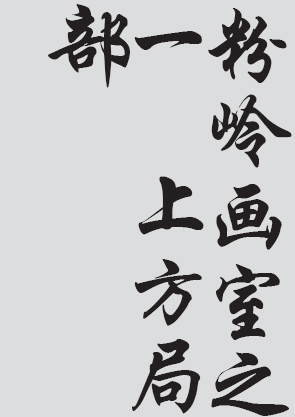 粉岭画室之
一 上方局
部